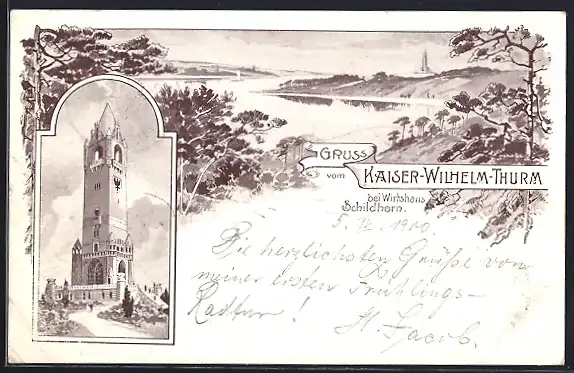 GRUSS
vom KAISER-WILHELM-THURM
bei Wirthshaus
Schildhorn.
5. IV. 1900.
Die herzlichsten Grüße von
meiner ersten Frühlings-
Radtour!
H. Jacob.